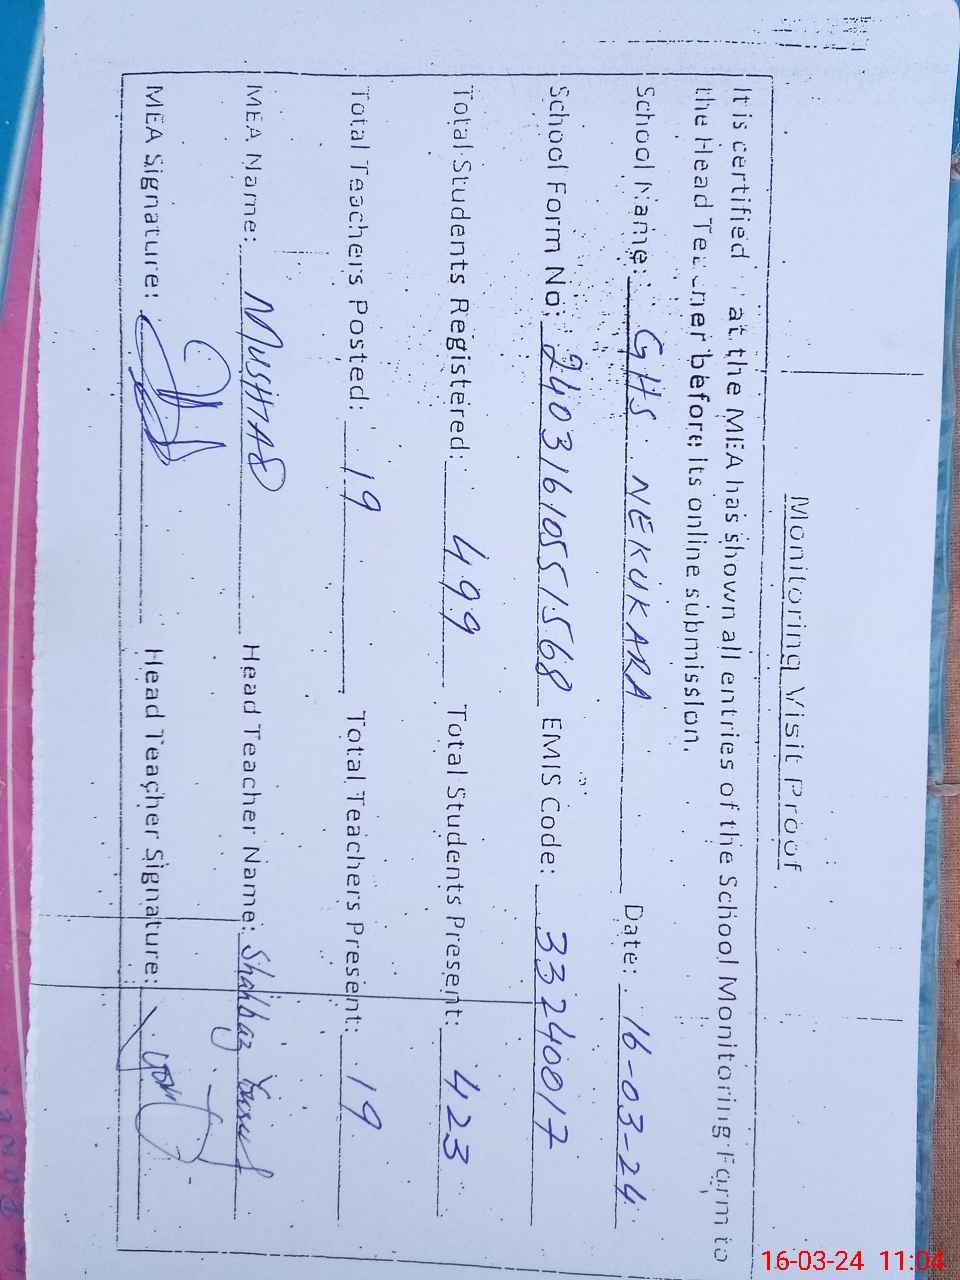 Monitoring Visit Proof
It is certified at the MEA has shown all entries of the School Monitoring Form to
the Head Teacher before its online submission.
School Name: GHS NEKUKARA Date: 16-03-24
School Form No: 24031610551568 EMIS Code: 33240017
Total Students Registered: 499 Total Students Present: 423
Total Teachers Posted: 19 Total Teachers Present: 19
MEA Name: MUSHTAQ Head Teacher Name: Shahbaz Yousuf
MEA Signature: Head Teacher Signature:
16-03-24 11:04